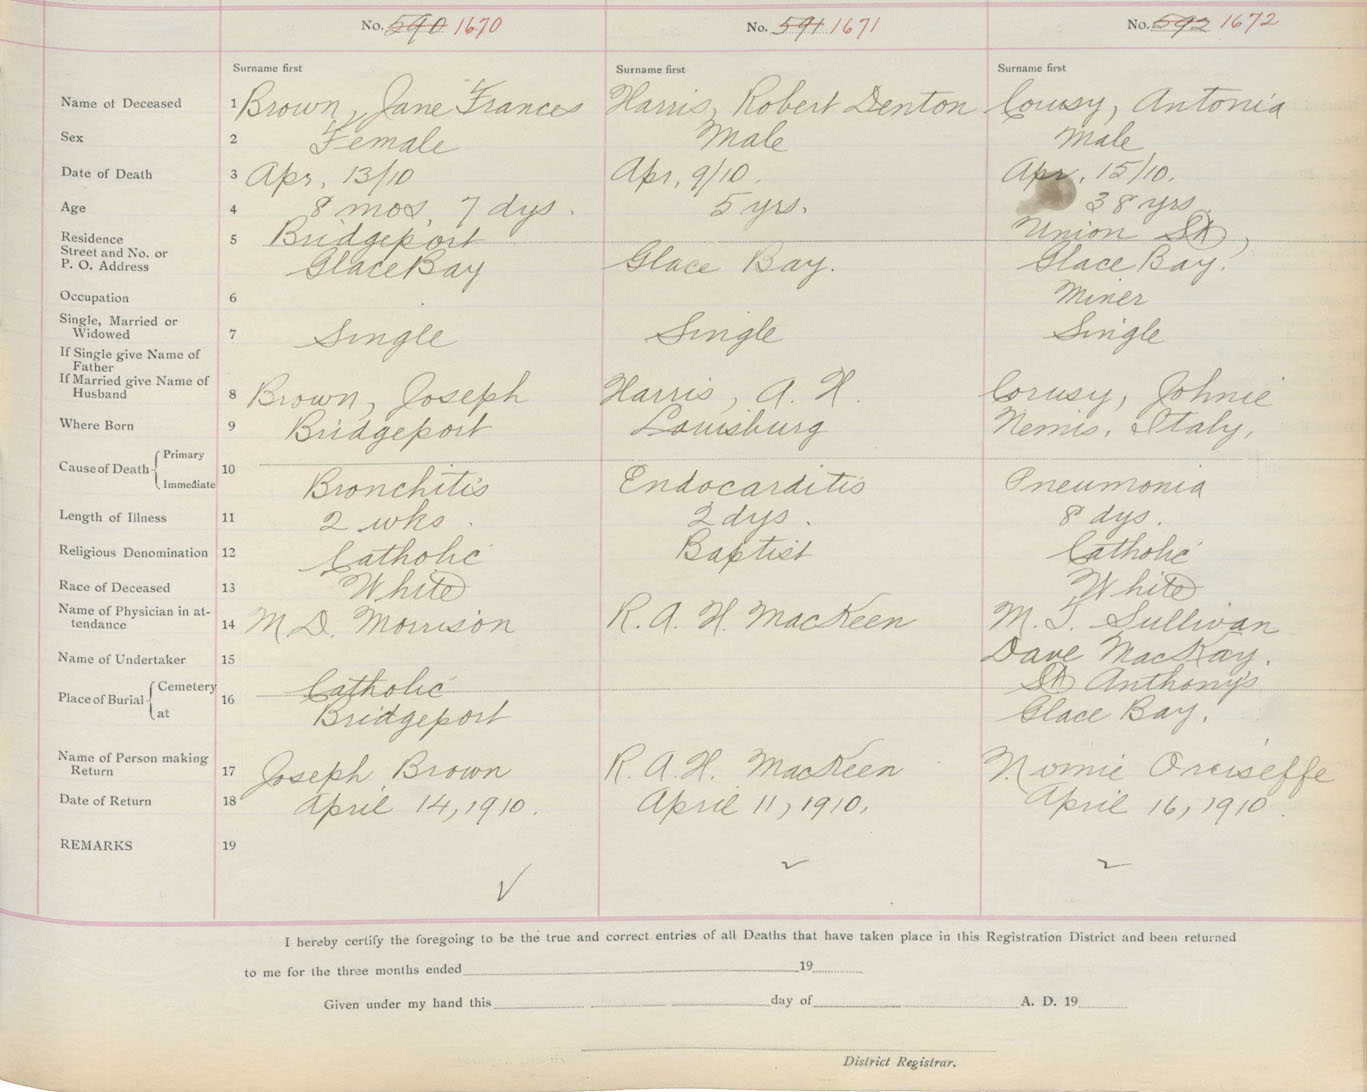 No. 590 1670 No. 591 1671 No. 592 1672
Surname first Surname first Surname first
Name of Deceased 1 Brown, Jane Frances Harris, Robert Denton Corusy, Antonia
Sex 2 Female Male Male
Date of Death 3 Apr, 13/10 Apr, 9/10. Apr, 15/10.
Age 4 8 mos, 7 dys. 5 yrs. 38 yrs.
Residence 5 Bridgeport Union St,
Street and No. or
P. O. Address Glace Bay Glace Bay. Glace Bay.
Occupation 6 Miner
Single, Married or
Widowed 7 Single Single Single
If Single give Name of
Father
If Married give Name of
Husband 8 Brown, Joseph Harris, A. H. Corusy, Johnie
Where Born 9 Bridgeport Louisburg Nemis, Italy,
Cause of Death Primary 10
Immediate Bronchitis Endocarditis Pneumonia
Length of Illness 11 2 wks. 2 dys. 8 dys.
Religious Denomination 12 Catholic Baptist Catholic
Race of Deceased 13 White White
Name of Physician in at-
tendance 14 M D. Morrison R. A. H. MacKeen M. T. Sullivan
Name of Undertaker 15 Dave MacKay.
Place of Burial Cemetery 16 Catholic St Anthony's
at Bridgeport Glace Bay.
Name of Person making
Return 17 Joseph Brown R. A. H. MacKeen
Date of Return 18 April 14, 1910. April 11, 1910. April 16, 1910.
REMARKS 19
I hereby certify the foregoing to be the true and correct entries of all Deaths that have taken place in this Registration District and been returned
to me for the three months ended 19
Given under my hand this day of A. D. 19
District Registrar.